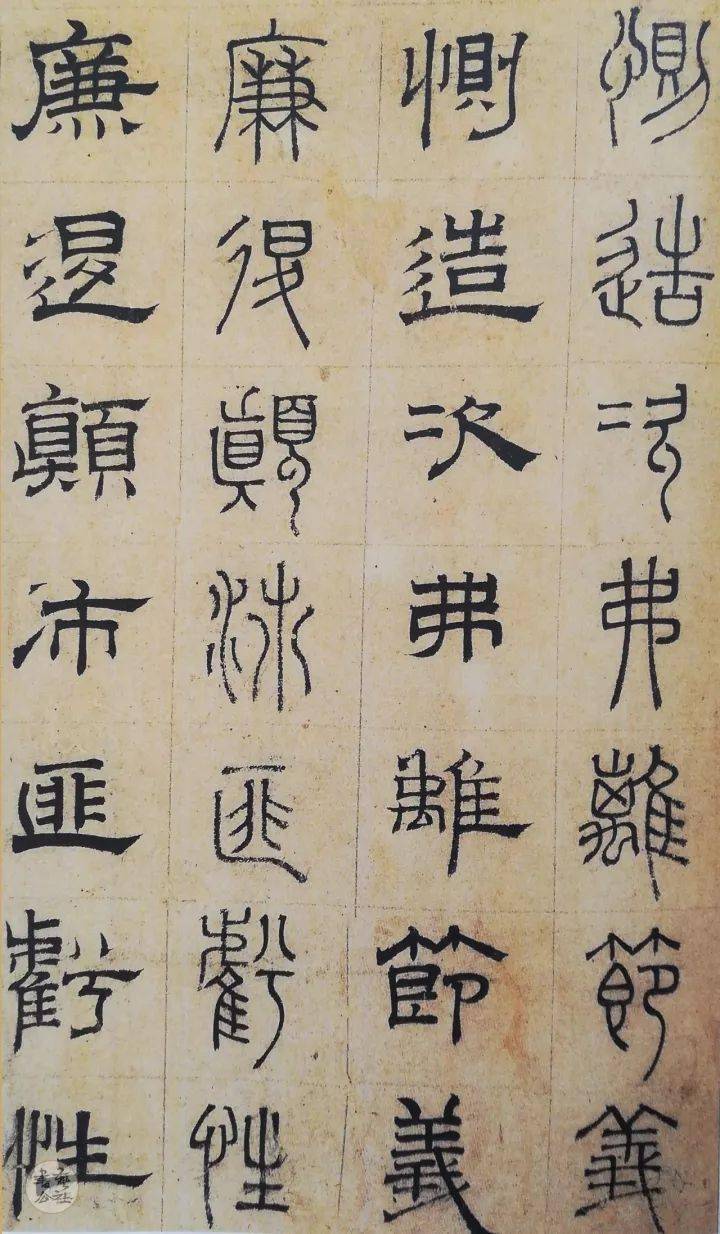 惻造次弗離節義
惻造次弗離節義
廉退顛沛匪虧性
廉退顛沛匪虧性